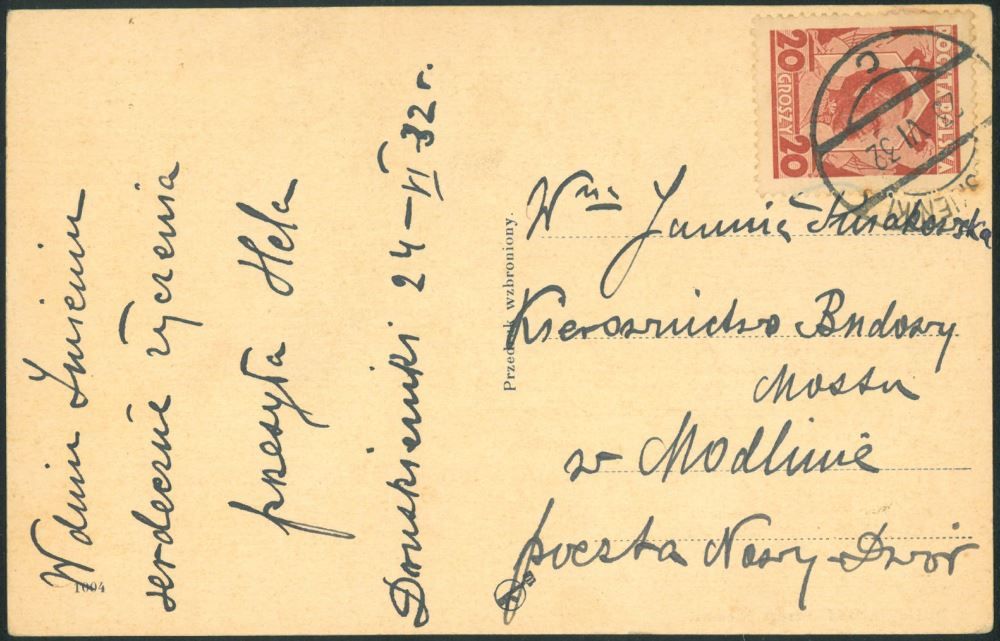 W dniu Imienin
serdeczne życzenia
przesyła Hela
Druskieniki 24-VI-32 r.
1004
Przedruk wzbroniony.
20 GROSZY 20
POCZTA POLSKA
VI 32
C
Wna Janina
Kierownictwo Budowy
Mostu
w Modlinie
poczta Nowy-Dwór